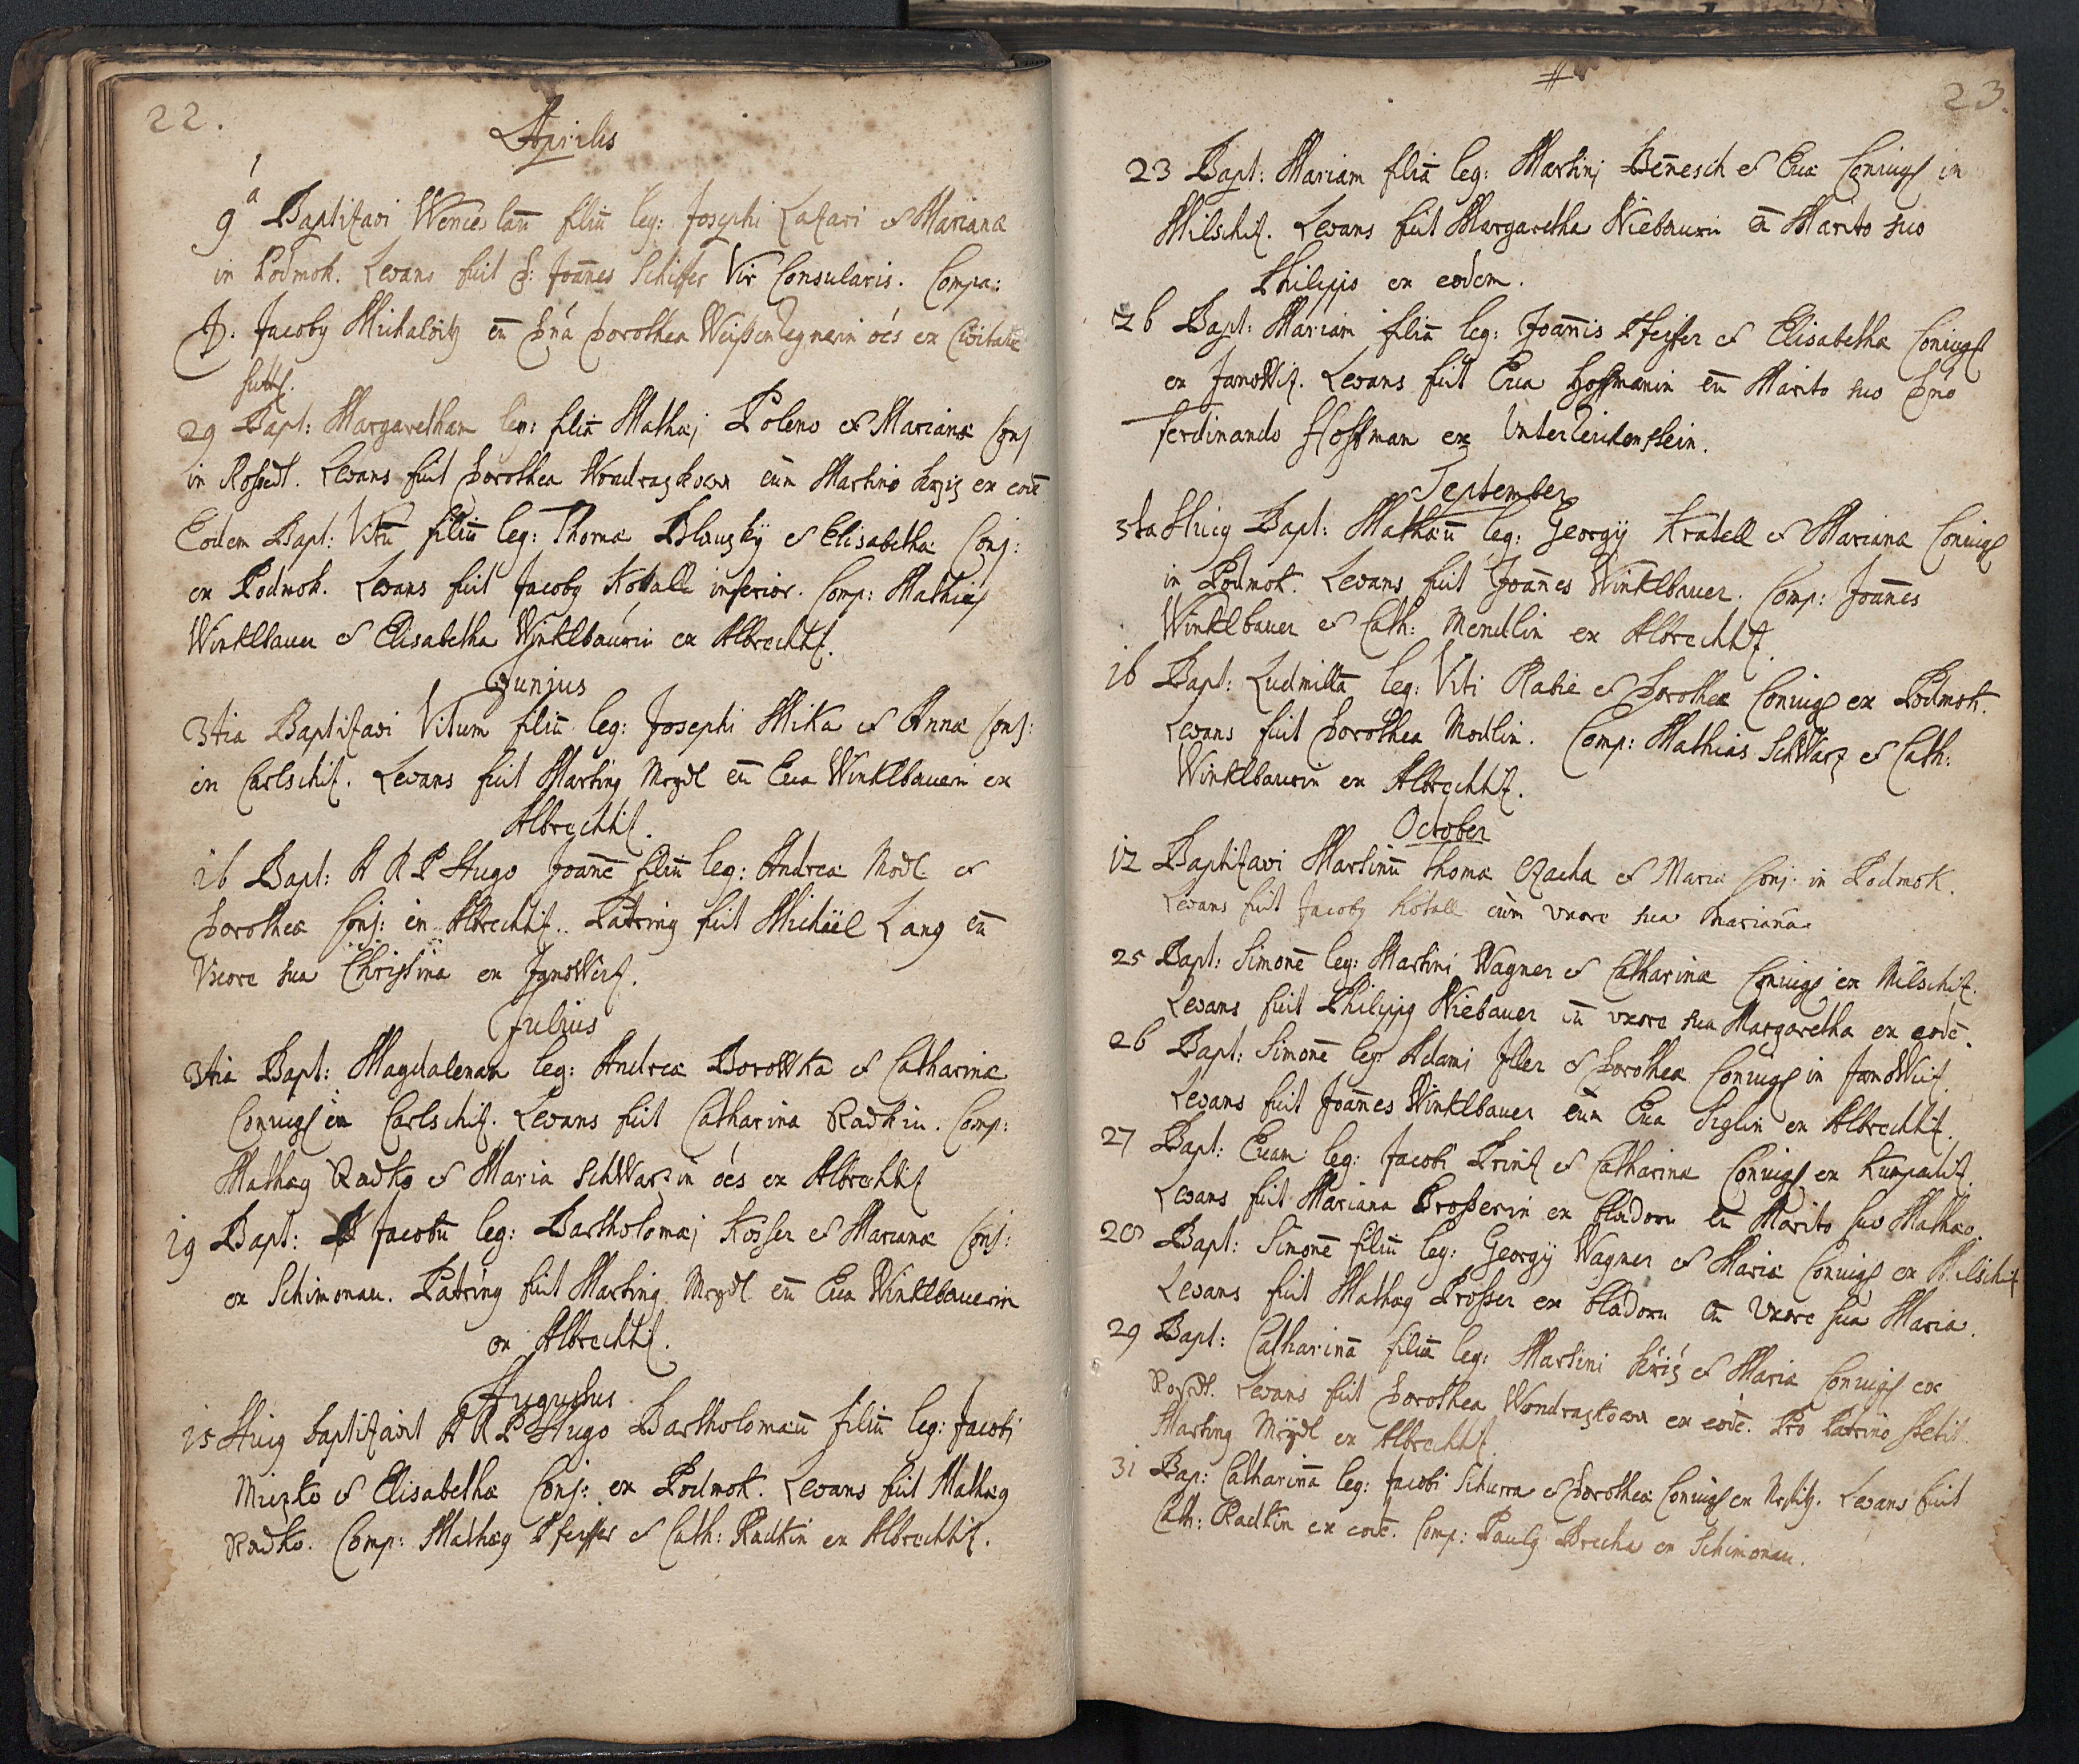 22.
Aprilis
9ª Baptizavi Wenceslaū filiū leg: Josephi Lazari et Mariana
in Podmok. Levans fuit D: Joañes Schiffer Vir Consularis. Compa:
D. Jacoby Michalovitz cū Dná Dorothea oēs ex Civitate
29 Bapt: Margaretham leg: filiā Mathæj Poleno et Marianæ Conj
in Rosedl. Levans fuit Dorothea Wondraskowa cum Martino Krziz ex eodē
Eodem Bapt: Vitū filiū leg: Thomæ Blausky et Elisabetha Conj:
ex Podmok. Levans fuit Jacoby Kotall inferior. Comp: Mathias
Winklbauer et Elisabetha Winklbaurin ex Albrechtz.
Junius
3tia Baptizavi Vitum filiū leg: Josephi Mika et Annæ Conj:
in Carlschitz. Levans fuit Marting Meydl cū Eva Winklbauerin ex
Albrechtitz.
16 Bapt: A R P Hugo Joañē filiū leg: Andreæ Modl et
Dorotheæ Conj: in Albrechtitz. Patring fuit Michael Lang cū
Vxore sua Christina ex Janowitz.
Julius
3tia Bapt: Magdalenam leg: Andreæ Borowka et Catharinæ
Coniug in Carlschitz. Levans fuit Catharina Radkin. Comp:
Mathæg Radko et Maria Schwarzin oēs ex Albrechtitz
19 Bapt: Jacobū leg: Bartholomæj Kosser et Marianæ Conj:
ex Schimonau. Patring fuit Marting Meydl cū Eva Winklbauerin
ex Albrechtz.
Augustus
15 Huig baptizavit A R P Hugo Bartholomæū filiū leg: Jacobi
Mirzko et Elisabethæ Conj: ex Podmok. Levans fuit Mathæg
Radko. Comp: Mathæg Pfeiffer et Cath: Radkin ex Albrechtitz.
23.
23 Bapt: Mariam filiā leg: Martinj Beñesch et Evæ Coniug in
Milschitz. Levans fuit Margaretha Niebaurin cū Marito suo
Philippo ex eodem.
26 Bapt: Mariam filiā leg: Joañis Pfeiffer et Elisabetha Coniug
ex Janowitz. Levans fuit Eva Hoffmanin cū Marito suo Dno
Ferdinando Hoffman ex Unterreichenstein.
September
5ta Huig Bapt: Mathæū leg: Georgÿ Kratell et Mariana Coniug
in Podmok. Levans fuit Joañes Winklbauer. Comp: Joañes
Winklbauer et Cath: Mendlin ex Albrechtz.
16 Bapt: Ludmillā leg: Viti Rabie et Dorotheæ Coniug ex Podmok.
Levans fuit Dorothea Modlin. Comp: Mathias Schwarz et Cath:
Winklbaurin ex Albrechtz.
October
12 Baptizavi Martinū Thomæ et Mariæ Conj: in Podmok.
Levans fuit Jacoby Kotall cum vxore sua Mariana
25 Bapt: Simonē leg: Martini Wagner et Catharinæ Coniug ex Milschitz.
Levans fuit Philippg Niebauer cū vxore sua Margaretha ex eodē.
26 Bapt: Simonē leg: Adami Iller et Dorotheæ Coniug in Janowitz.
Levans fuit Joañes Winklbauer cum Eva Siglin ex Albrechtz.
27 Bapt: Evam leg: Jacobi Printz et Catharinæ Coniug ex Kumpatitz.
Levans fuit Mariana Prosserin ex Eladorn cū Marito suo Mathæo.
28 Bapt: Simonē filiū leg: Georgÿ Wagner et Mariæ Coniug ex Milschitz
Levans fuit Mathæg Prosser ex Eladorn cū Vxore sua Maria.
29 Bapt: Catharinā filiā leg: Martini Kriz et Mariæ Coniug ex
Rosedl. Levans fuit Dorothea Wondraskowa ex eodē. Pro Patrino stetit
Marting Meydl ex Albrechtz.
31 Bap: Catharinā leg: Jacobi Schurra et Dorotheæ Coniug ex. Levans fuit
Cath: Radkin ex eodē. Comp: Paulg Brecha ex Schimonau.